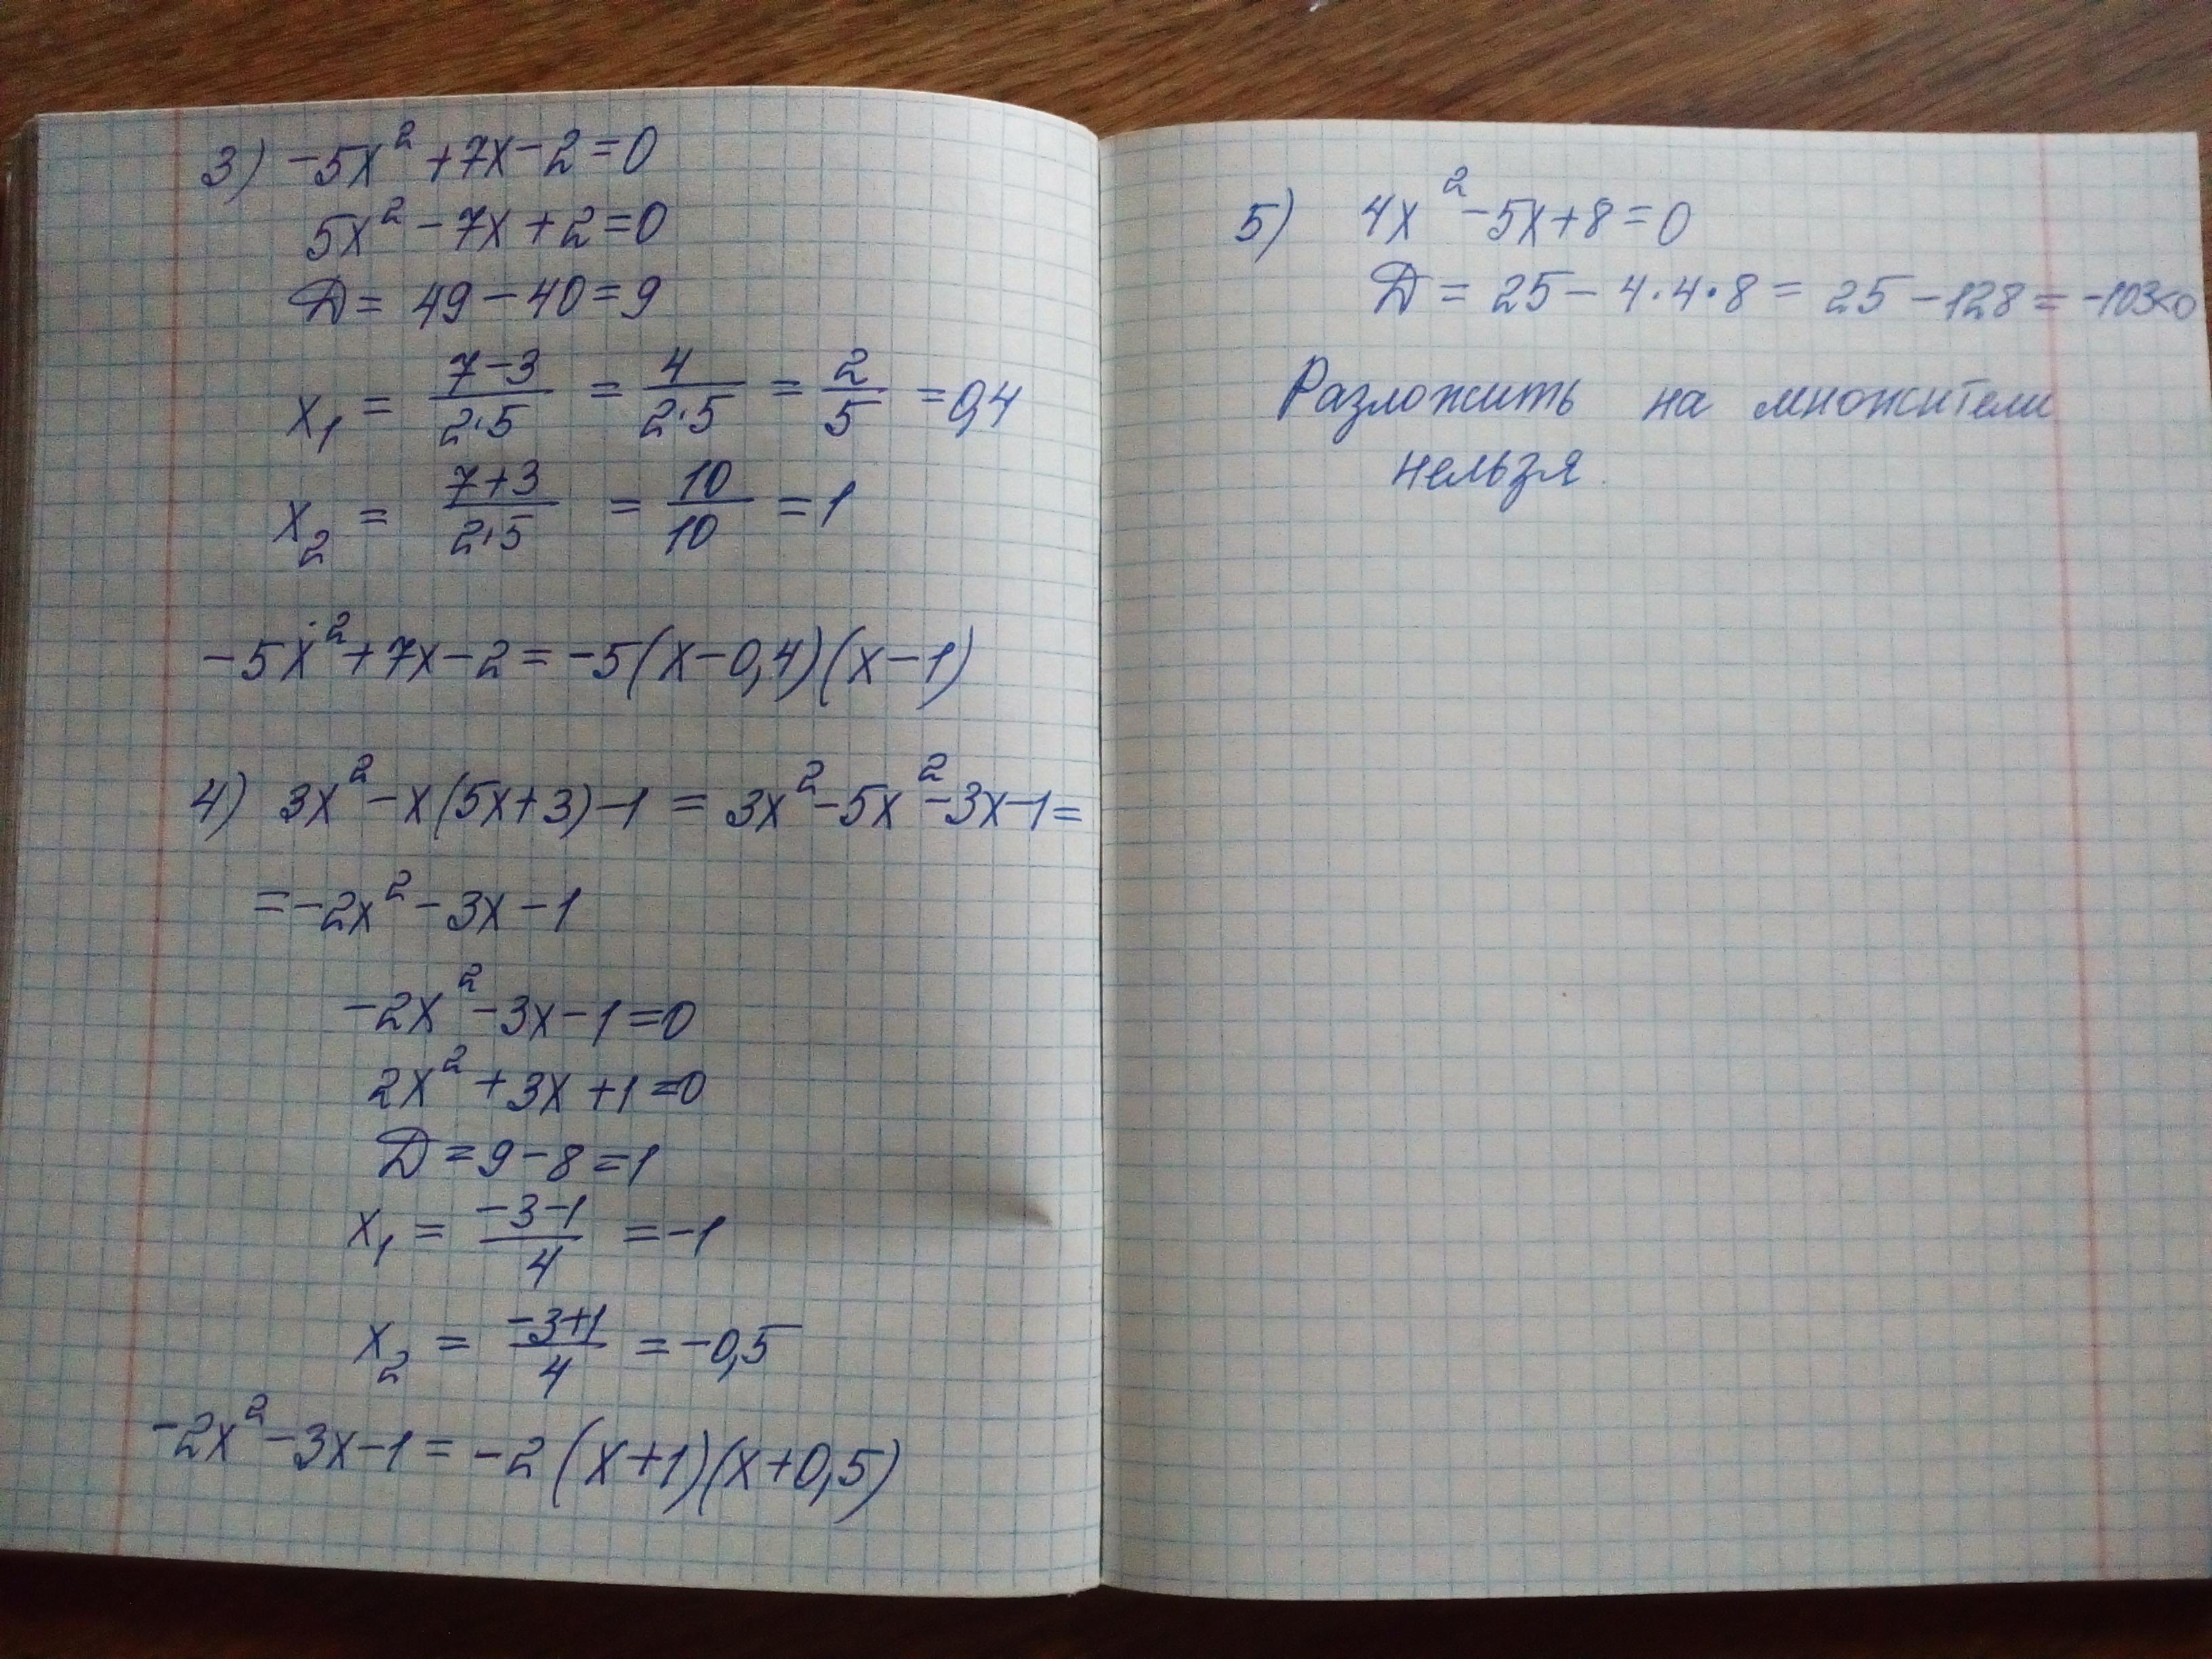 3) -5x² +7x-2=0
5x² -7x+2=0
D= 49-40=9
x₁ = (7-3)/(2·5) = 4/(2·5) = 2/5 =0,4
x₂ = (7+3)/(2·5) = 10/10 =1
-5x²+7x-2=-5(x-0,4)(x-1)
4) 3x²-x(5x+3)-1 = 3x²-5x²-3x-1=
=-2x²-3x-1
-2x²-3x-1=0
2x²+3x+1=0
D=9-8=1
x₁ = (-3-1)/4 =-1
x₂ = (-3+1)/4 =-0,5
-2x²-3x-1=-2(x+1)(x+0,5)
5) 4x²-5x+8=0
D = 25-4·4·8 = 25-128=-103<0
Разложить на множители
нельзя.